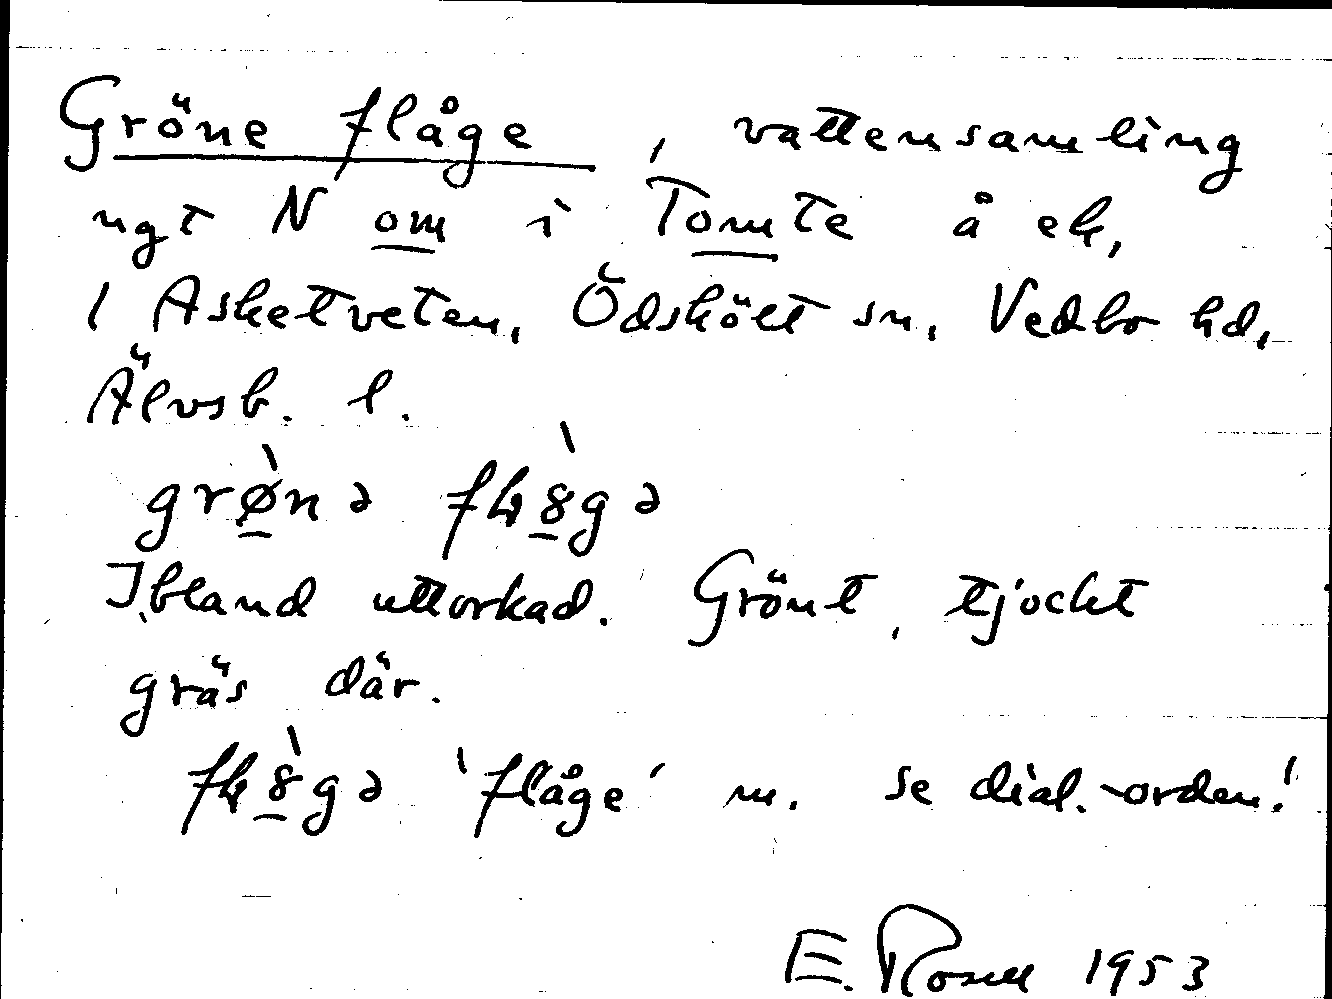 Gröne flåge, vattensamling
ngt N om i Tomte å ek,
1 Asketveten, Ödskölt sn, Vedbo hd,
Älvsb. l.
grø̀nə fɫ8̀gə
Ibland uttorkad. Grönt, tjockt
gräs där.
fɫ8̀gə 'flåge' m. se dial.-orden!
E. Rosell 1953